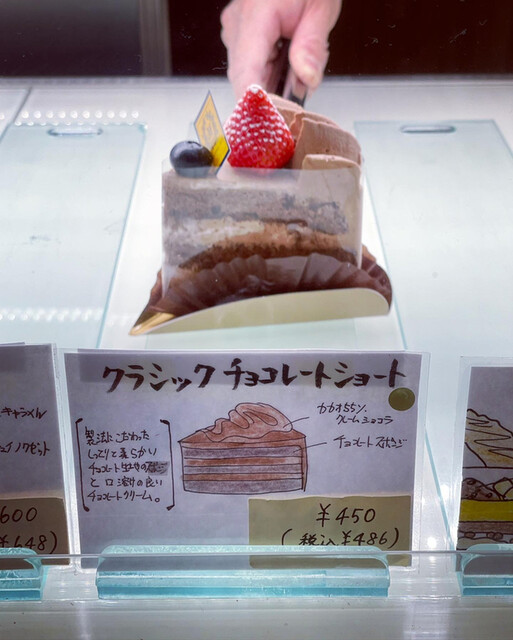 クラシック チョコレートショート
カカオ55%
クレームショコラ
チョコレート
製法にこだわった
しっとりと柔らかい
チョコレート生地
と口溶けの良い
チョコレートクリーム。
¥450
(税込¥486)
キャラメル
600
¥648)